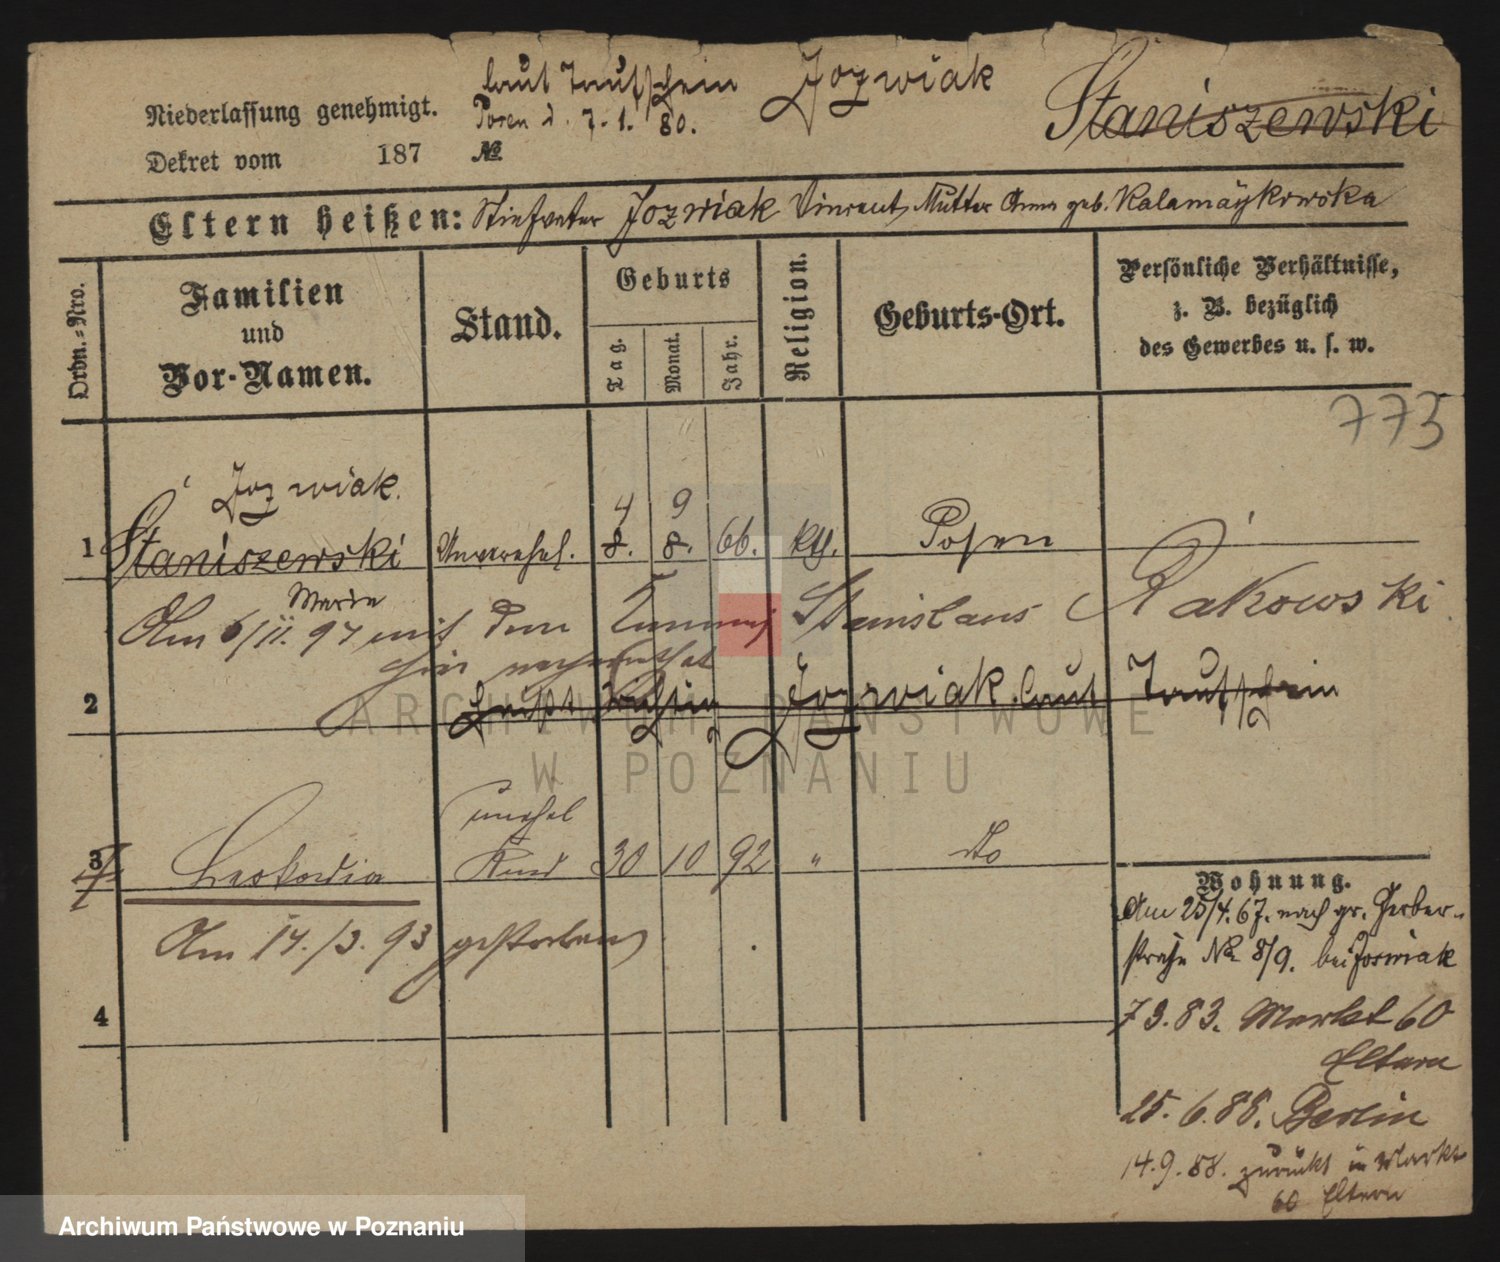 laut Taufschein Jozwiak
Niederlassung genehmigt. Posen d. 7.1. 80. Staniszewski
Dekret vom 187 №
Eltern heißen: Stiefvater Jozwiak Vincent, Mutter Anna geb.
Ordn.-Nro.
Familien
und
Vor-Namen.
Stand.
Geburts
Tag.
Monat.
Jahr.
Religion.
Geburts-Ort.
Persönliche Verhältnisse,
z. B. bezüglich
des Gewerbes u. s. w.
773
Jozwiak.
4 9
1 Staniszewski Unverehel. 8. 8. 66. kth. Posen
Marie
Am 6/11. 97 mit dem Stanislaus Rakowski
hier verheirathet
2 heißt richtig Jozwiak laut Taufschein
unehel
3 Leokadia Kind 30 10 92 " do
Am 14./3. 93 gestorben
4
Wohnung.
Am 25/4. 67. nach gr. Gerber-
straße № 8/9. bei Joswiak
7 3. 83. Markt 60
Eltern
25. 6. 88. Berlin
14. 9. 88. zurückt in Markt
60 Eltern
ARCHIWUM PAŃSTWOWE
W POZNANIU
Archiwum Państwowe w Poznaniu